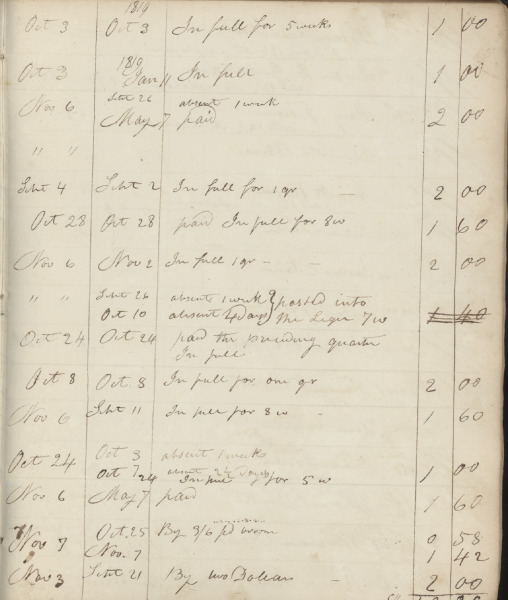 1810
Oct 3 Oct 3 In full for 5 weeks 1 00
1810
Oct 3 Jan 11 In full 1 00
Sebt 26 absent 1 week
Nov 6 May 7 paid 2 00
" "
Sebt 4 Sebt 2 In full for 1 qr — 2 00
Oct 28 Oct 28 paid In full for 8 w 1 60
Nov 6 Nov 2 In full 1 qr - 2 00
" " Sebt 26 absent 1 week } posted into
Oct 10 absent 4 days } the Leger 7 w 1 40
Oct 24 Oct 24 paid the preceding quarter
In full
Oct 8 Oct 8 In full for one qr 2 00
Nov 6 Sebt 11 In full for 8 w - 1 60
Oct 3 absent 1 week
Oct 24 Oct 7 absent 2½ days
24 In full for 5 w 1 00
Nov 6 May 7 paid 1 60
Oct. 25 By 3/6 pd 0 58
Nov 7 Nov. 7 1 42
Nov 3 Sebt 21 By two Dolears - 2 00